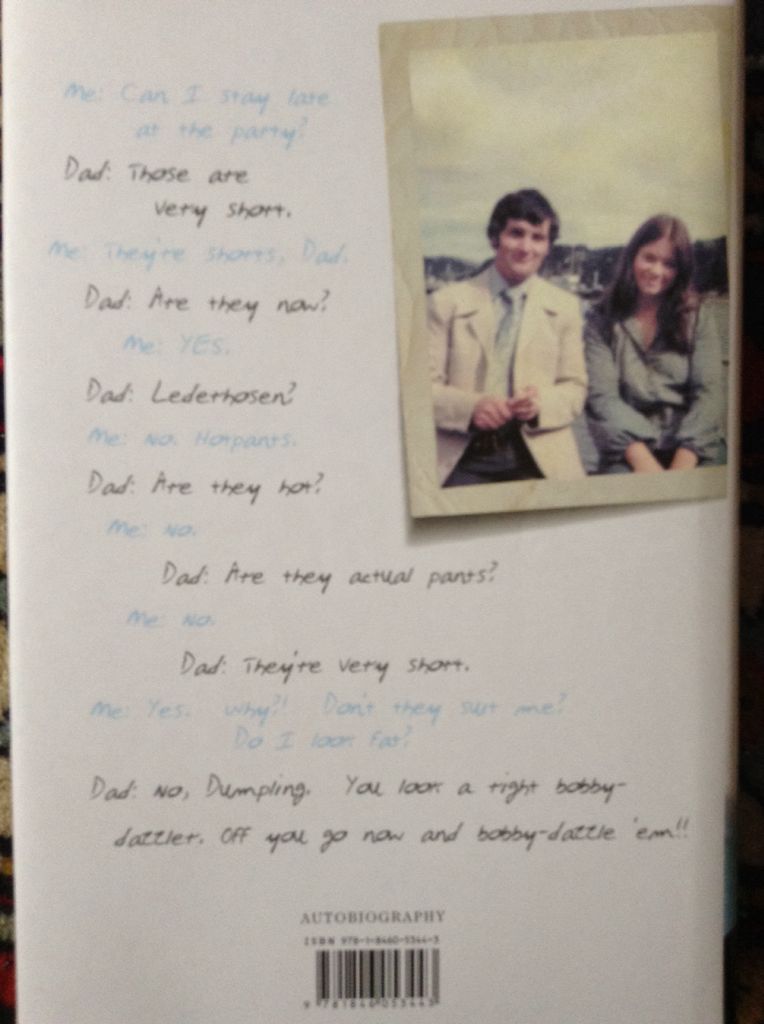 Me: Can I stay late
at the party?
Dad: Those are
very short.
Me: They're shorts, Dad.
Dad: Are they now?
Me: YES.
Dad: Lederhosen?
Me: No. Hotpants.
Dad: Are they hot?
Me: No.
Dad: Are they actual pants?
Me: No.
Dad: They're very short.
Me: Yes. Why?! Don't they suit me?
Do I look fat?
Dad: No, Dumpling. You look a right bobby-
dazzler. Off you go now and bobby-dazzle 'em!!
AUTOBIOGRAPHY
ISBN 978-1-8460-5344-3
9 781846 053443